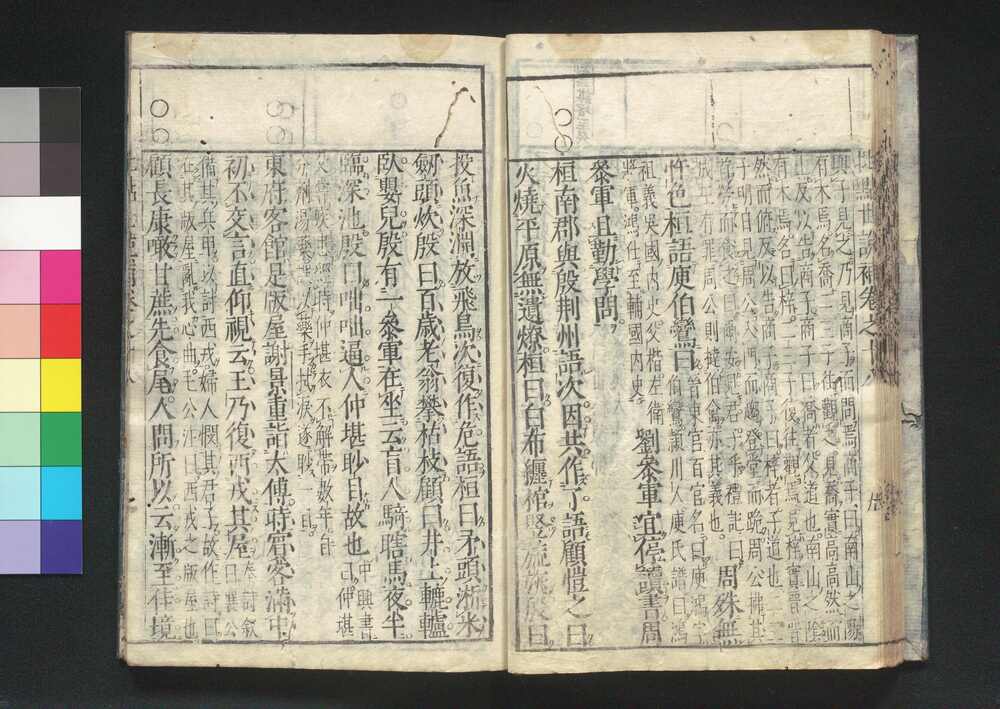 世說新語補卷之
與子見之乃見商子而問焉商子曰南山之陽
有木焉名喬二三子往觀之見喬實高高然而
上反以告商子商子曰喬者父道也南山之陰
有木焉名曰梓二三子復往觀焉見梓實晋晋
然而俯反以告商子商子曰梓者子道也二三
子明日見周公入門而趨登堂而跪周公拂其
首勞而食之曰爾安見君子乎禮記曰
成王有罪周公則撻伯禽亦其義也 周殊無
忤色桓語庾伯鸞曰 晉東宮百官名曰庾鴻字
伯鸞潁川人庾氏譜曰鴻
祖義吳國內史父楷左衛
將軍鴻仕至輔國內史 劉參軍宜停讀書周
參軍且勤學問
桓南郡與殷荊州語次因共作了語顧愷之曰
火燒平原無遺燎桓曰白布纏棺竪旒旐殷曰
投魚深淵放飛鳥次復作危語桓曰矛頭淅米
劒頭炊殷曰百歲老翁攀枯枝顧曰井上轆轤
臥嬰兒殷有一參軍在坐云盲人騎瞎馬夜半
臨深池殷曰咄咄逼人仲堪眇目故也 中興書
曰仲堪
父嘗疾患經時仲堪衣不解帶數年自
分劑湯藥誤以藥手拭淚遂眇一目
東府客館是版屋謝景重詣太傅時賓客滿中
初不交言直仰視云王乃復西戎其屋 秦詩叙
曰襄公
備其兵甲以討西戎婦人憫其君子故作詩曰
在其版屋亂我心曲毛公注曰西戎之版屋也
顧長康噉甘蔗先食尾人問所以云漸至佳境